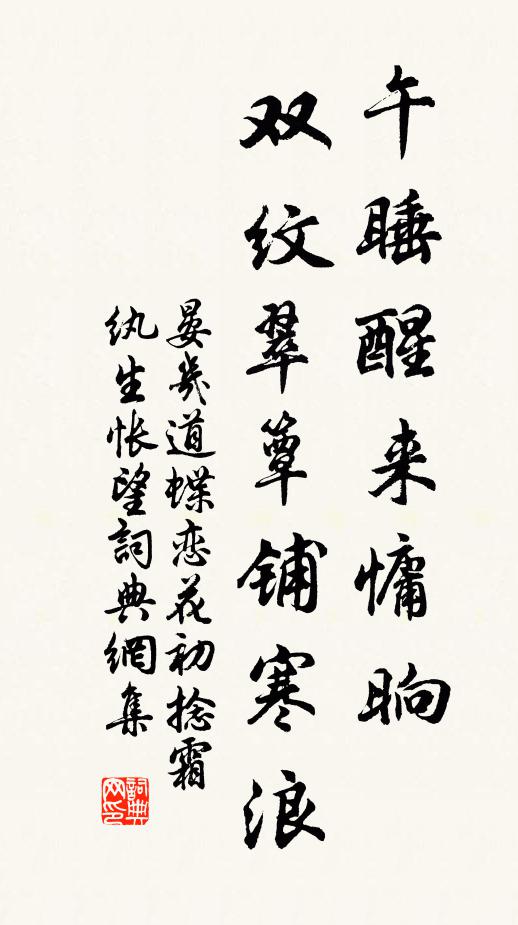 午睡醒来慵晌
双纹翠簟铺寒浪
晏幾道蝶恋花初捻霜
纨生怅望詞典網集
詞典网印